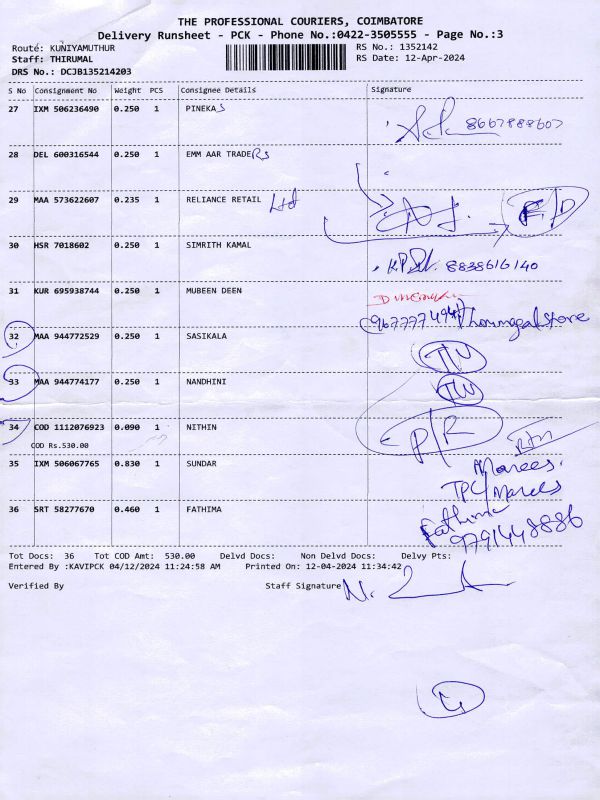 THE PROFESSIONAL COURIERS, COIMBATORE
Delivery Runsheet - PCK - Phone No.:0422-3505555 - Page No.:3
Route: KUNIYAMUTHUR RS No.: 1352142
Staff: THIRUMAL RS Date: 12-Apr-2024
DRS No.: DCJB135214203
S No Consignment No Weight PCS Consignee Details Signature
27 IXM 506236490 0.250 1 PINEKAS
8667888607
28 DEL 600316544 0.250 1 EMM AAR TRADERS
29 MAA 573622607 0.235 1 RELIANCE RETAIL Ltd
F/D
30 HSR 7018602 0.250 1 SIMRITH KAMAL
8838616140
31 KUR 695938744 0.250 1 MUBEEN DEEN
32 MAA 944772529 0.250 1 SASIKALA
33 MAA 944774177 0.250 1 NANDHINI
34 COD 1112076923 0.090 1 NITHIN P/R
COD Rs.530.00
35 IXM 506067765 0.830 1 SUNDAR
Marees
TPC/Marees
36 SRT 58277670 0.460 1 FATHIMA Fathima
9791448886
Tot Docs: 36 Tot COD Amt: 530.00 Delvd Docs: Non Delvd Docs: Delvy Pts:
Entered By :KAVIPCK 04/12/2024 11:24:58 AM Printed On: 12-04-2024 11:34:42
Verified By Staff Signature